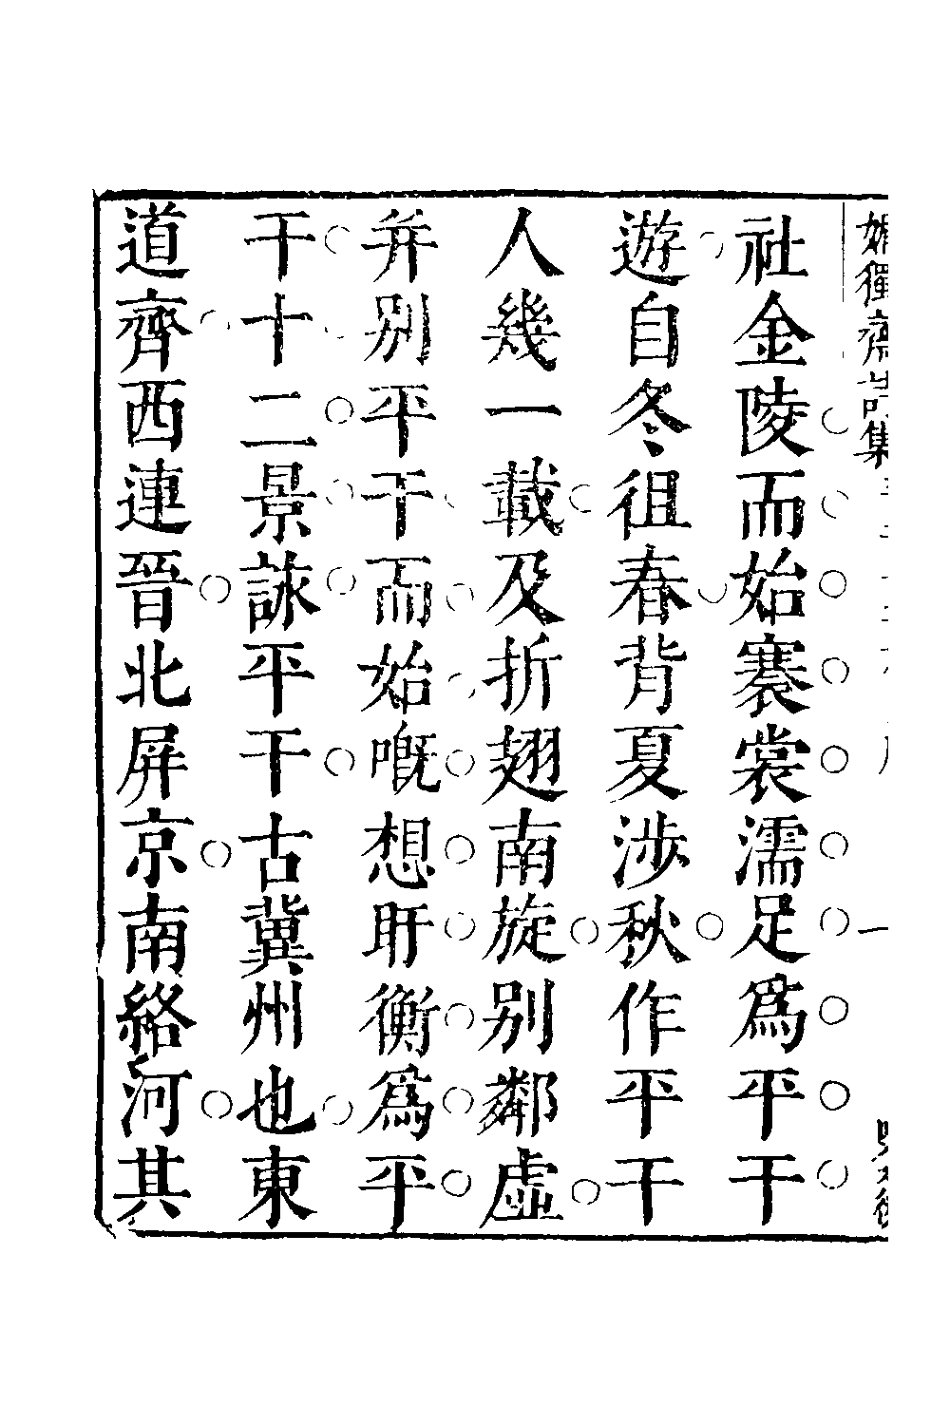 獨齋詩集
一
社金陵而始褰裳濡足爲平干
遊自冬徂春背夏涉秋作平干
人幾一載及折翅南旋別鄰虛
并別平干而始嘅想盱衡爲平
干十二景詠平干古冀州也東
道齊西連晉北屏京南絡河其